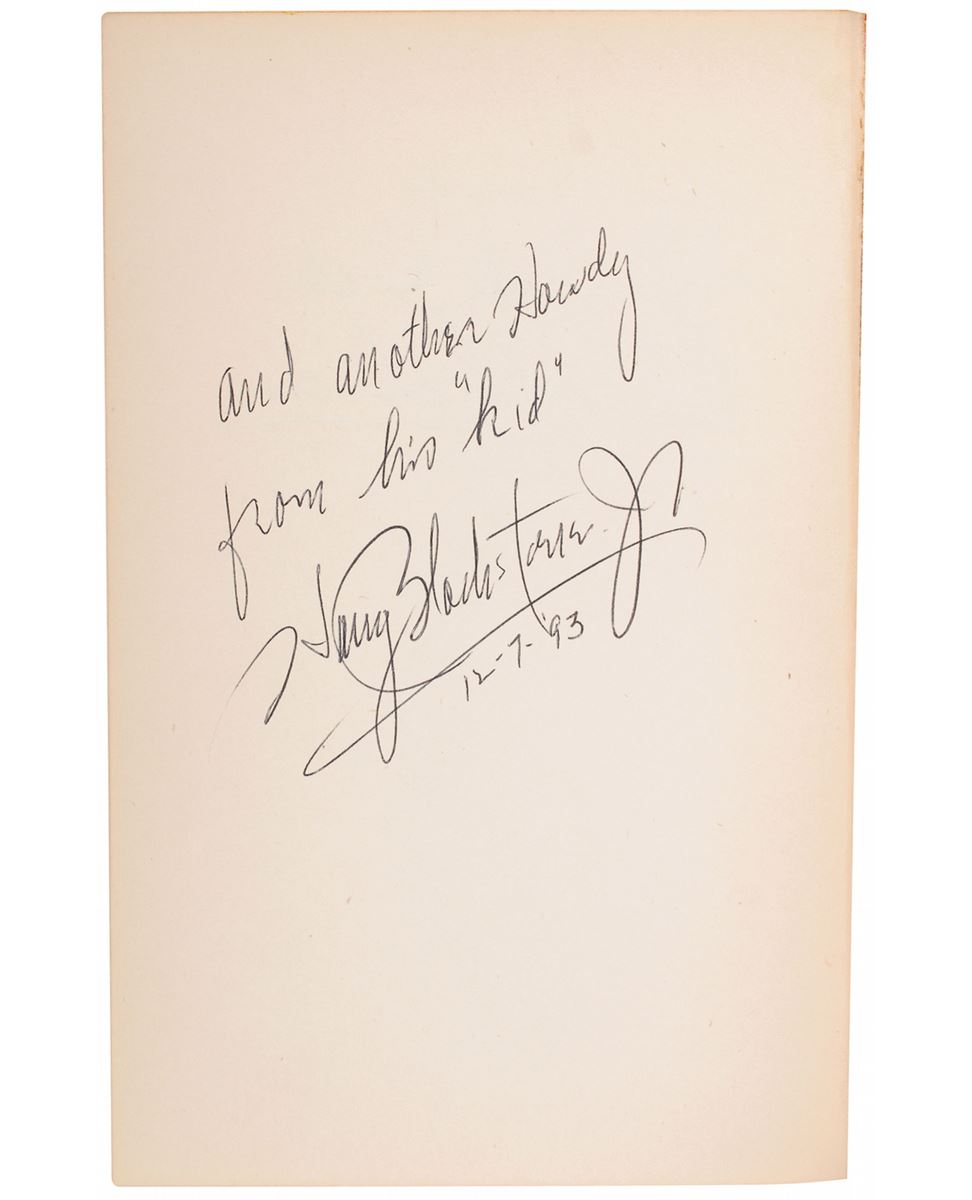 and another Howdy
from his "kid"
Harry Blackstone Jr
12-7-'93